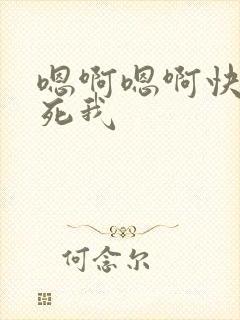 嗯啊嗯啊快
死我
何念尔